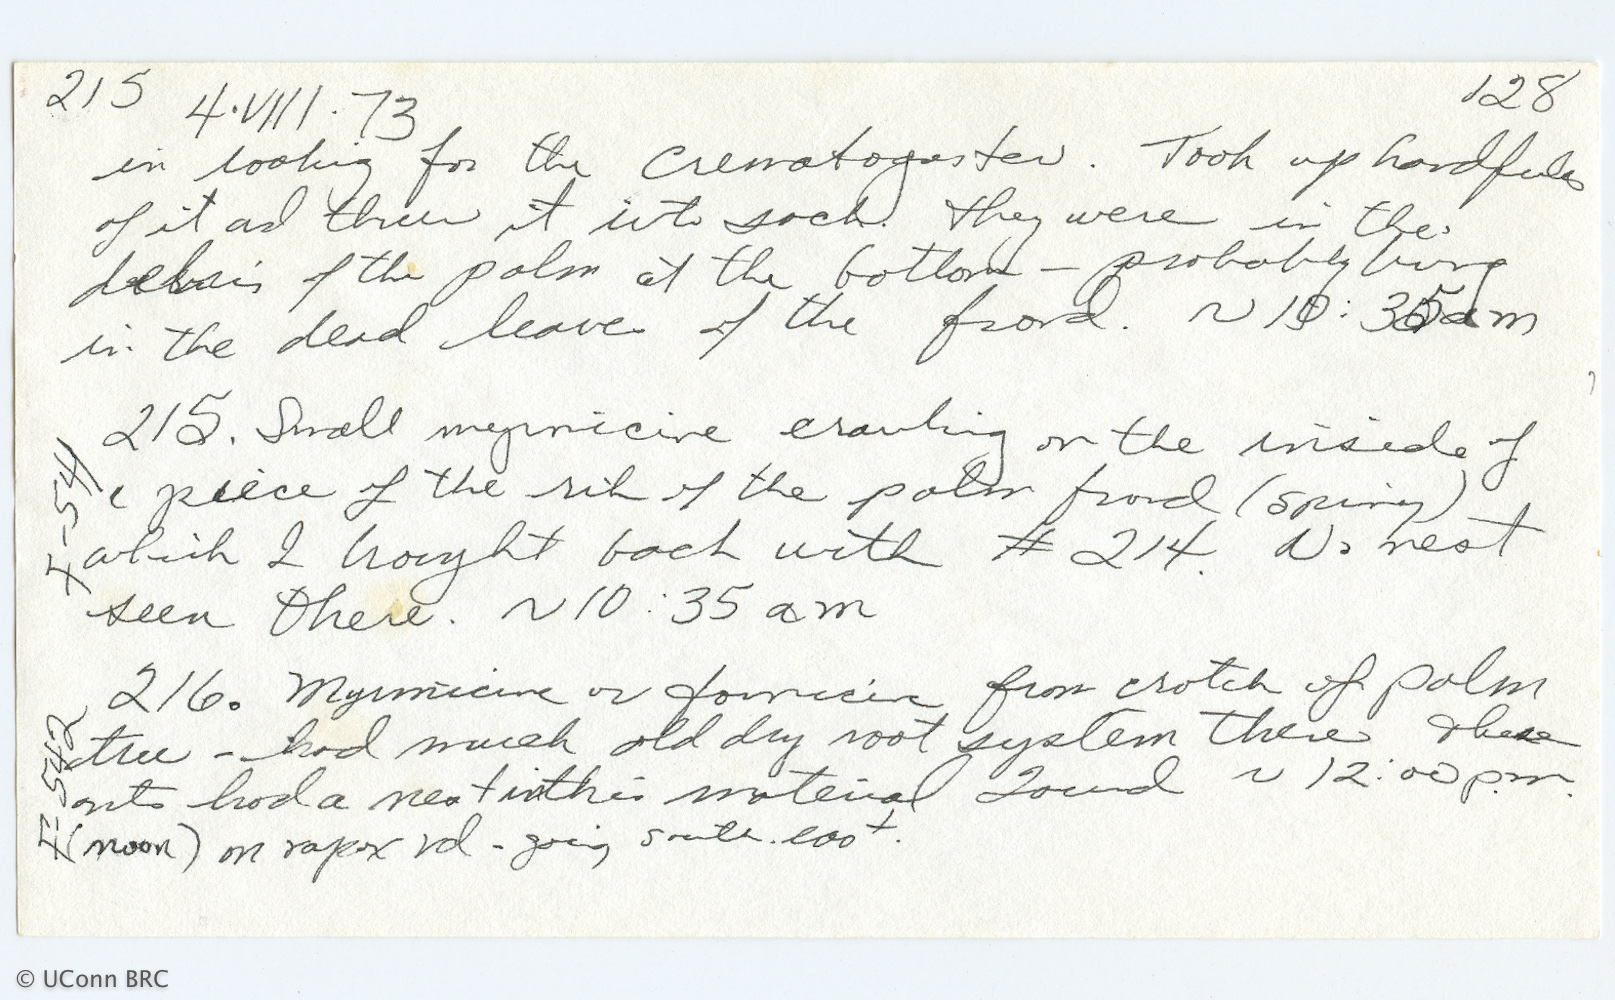 215 4·VIII·73 128
in looking for the Crematogaster. Took up handfuls
of it ad threw it into sack. They were in the
debris of the palm at the bottom – probably living
in the dead leaves of the frond. ~ 10:35am
215. Small myrmicine crawling on the inside of
a piece of the rib of the palm frond (spiny)
which I brought back with # 214. No nest
seen there. ~10:35 am
216. Myrmicine or formicine from crotch of palm
tree – had much old dry root system there these
ants had a nest in this material Found ~ 12:00 p.m.
(noon) on rd – going south east.
-541
-542
© UConn BRC